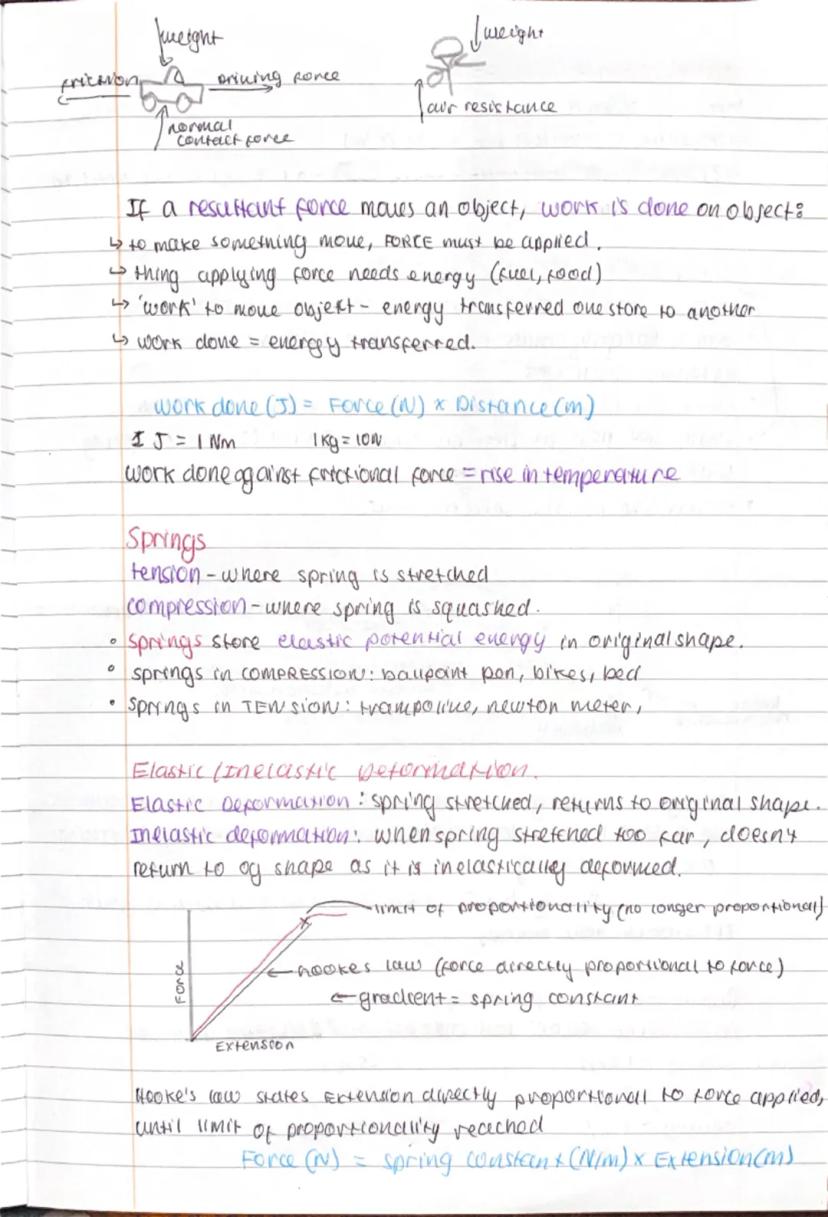 weight
weight
friction
driving force
air resistance
normal
contact force
If a resultant force moves an object, work is done on object:
↳ to make something move, FORCE must be applied.
↳ thing applying force needs energy (fuel, food)
↳ 'work' to move objekt - energy transferred one store to another
↳ work done = energy transferred.
Work done (J) = Force (N) × Distance (m)
1 J = 1 Nm 1 kg = 10N
work done against frictional force = rise in temperature
Springs
tension - where spring is stretched
compression - where spring is squashed.
• Springs store elastic potential energy in original shape.
• springs in COMPRESSION: ballpoint pen, bikes, bed
• springs in TENSION: trampoline, newton meter,
Elastic/Inelastic Deformation.
Elastic Deformation: spring stretched, returns to original shape.
Inelastic deformation: when spring stretched too far, doesn't
return to og shape as it is inelastically deformed.
limit of proportionality (no longer proportional)
Force
← hookes law (force directly proportional to force)
← gradient = spring constant
Extension
Hooke's law states Extension directly proportional to force applied,
until limit of proportionality reached
Force (N) = spring constant (N/m) × Extension (m)